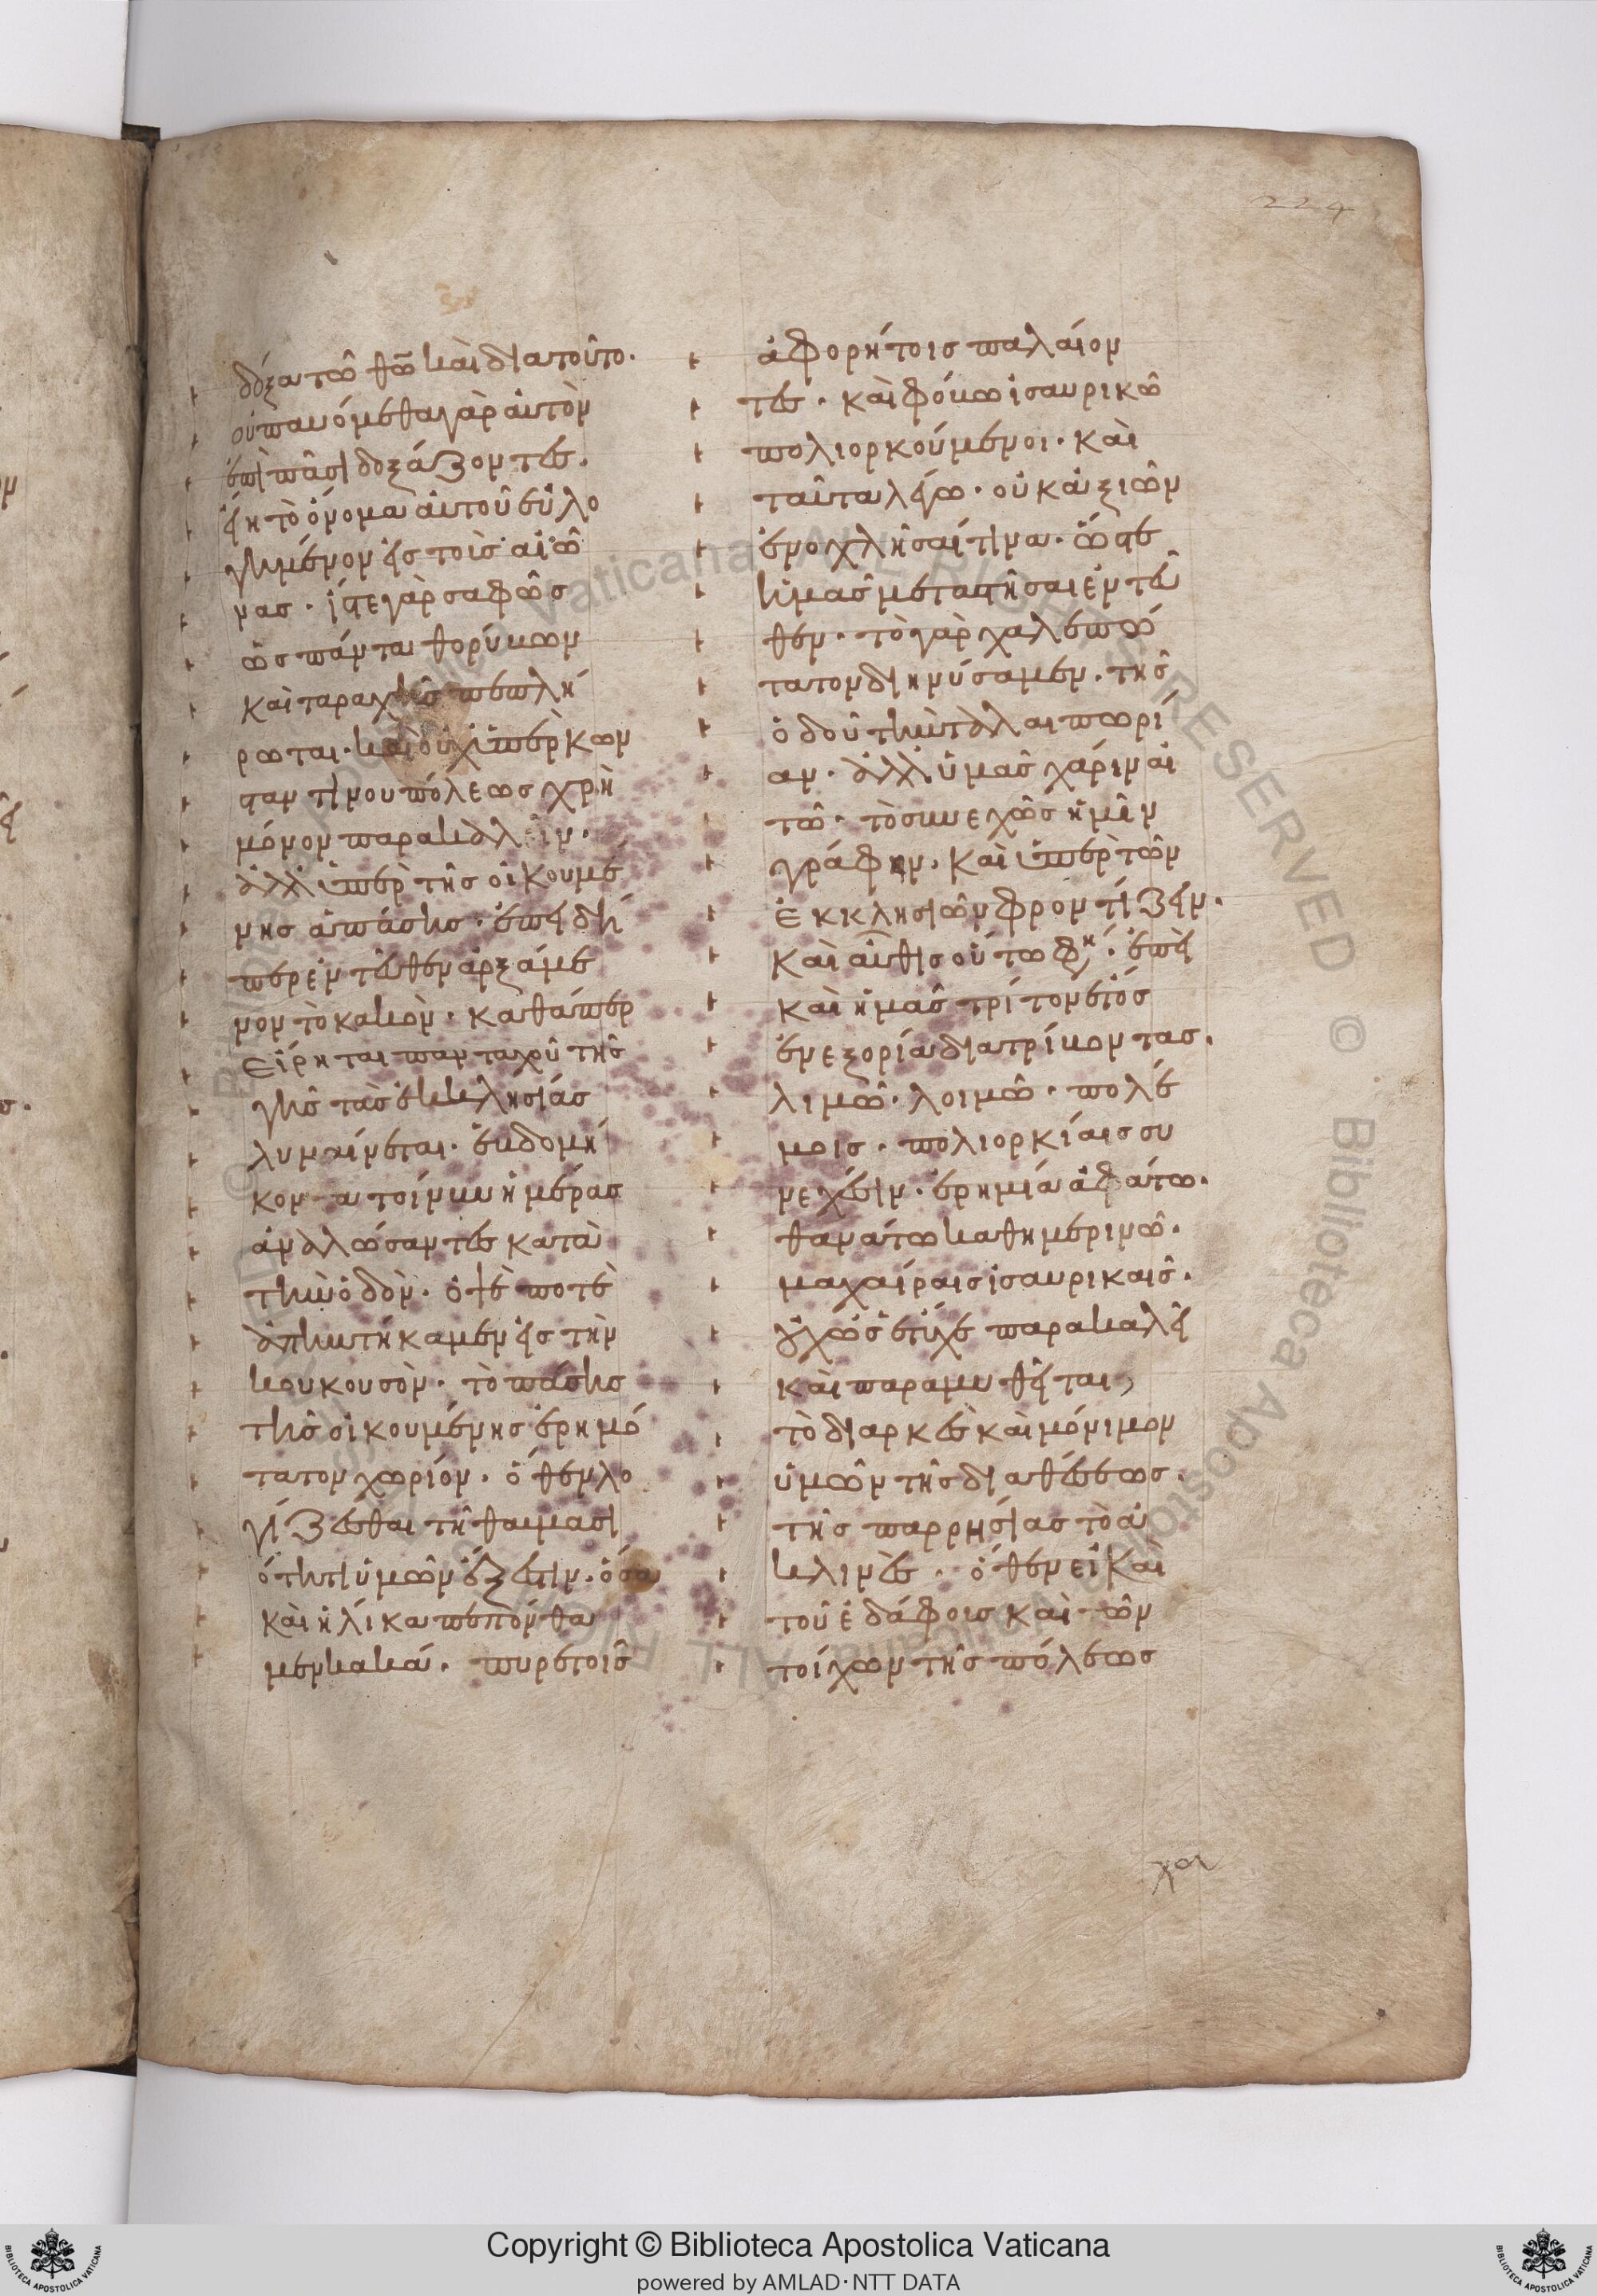 224
δόξα τῶ θ̅ω̅ καὶ διατοῦτο.
οὐ παυόμεθα γὰρ αὐτὸν
ἐπὶ πᾶσι δοξάζοντες.
εἴη τὸ ὄνομα αὐτοῦ εὐλο
γημένον εἰς τοὺς αἰῶ
νας · ἴστε γὰρ σαφῶς
ὡς πάντα θορύβων
καὶ ταραχῆς πεπλή
ρωται · καὶ οὐχ ὑπὲρ Κων
σταντίνου πόλεως χρὴ
μόνον παρακαλεῖν ·
ἀλλ' ὑπὲρ τῆς οἰκουμέ
νης ἁπάσης · ἐπειδὴ
περ ἐντεῦθεν ἀρξάμε
νον τὸ κακὸν · καθάπερ
εἴρηται πανταχοῦ τῆς
γῆς τὰς ἐκκλησίας
λυμαίνεται · ἑβδομή
κοντα τοίνυν ἡμέρας
ἀναλώσαντες κατὰ
τὴν ὁδὸν · ὀψέ ποτε
ἀπηντήκαμεν εἰς τὴν
Κουκουσὸν · τὸ πάσης
τῆς οἰκουμένης ἐρημό
τατον χωρίον · ὅθεν λο
γίζεσθαι τῆ θαυμασι
ότητι ὑμῶν ἔξεστιν · ὅσα
καὶ ἡλίκα πεπόνθα
μεν κακά · πυρετοῖς
ἀφορήτοις παλαίον
τες · καὶ φόβω ἰσαυρικῶ
πολιορκούμενοι · καὶ
ταῦτα λέγω · οὐκ ἀξιῶν
ἐνοχλῆσαί τινα · ὥστε
ἡμᾶς μεταστῆσαι ἐντεῦ
θεν · τὸ γὰρ χαλεπώ
τατον διηνύσαμεν · τῆς
ὁδοῦ τὴν ταλαιπωρί
αν · ἀλλ' ὑμᾶς χάριν αἰ
τῶ · τὸ συνεχῶς ἡμῖν
γράφειν · καὶ ὑπὲρ τῶν
ἐκκλησιῶν φροντίζειν ·
καὶ αὖθις οὕτω φη · ἐπεὶ
καὶ ἡμᾶς τρίτον ἔτος
ἐν ἐξορία διατρίβοντας ·
λιμῶ · λοιμῶ · πολέ
μοις · πολιορκίαις συ
νεχέσιν · ἐρημία ἀφάτω ·
θανάτω καθημερινῶ ·
μαχαίραις ἰσαυρικαῖς ·
οὐχ ὡς ἔτυχε παρακαλεῖ
καὶ παραμυθεῖται,
τὸ διαρκὲς καὶ μόνιμον
ὑμῶν τῆς διαθέσεως ·
τῆς παρρησίας τὸ ἀ
κλινὲς · ὅθεν εἰ καὶ
τοῦ ἐδάφους καὶ τῶν
τοίχων τῆς πόλεως
Copyright © Biblioteca Apostolica Vaticana
powered by AMLAD·NTT DATA